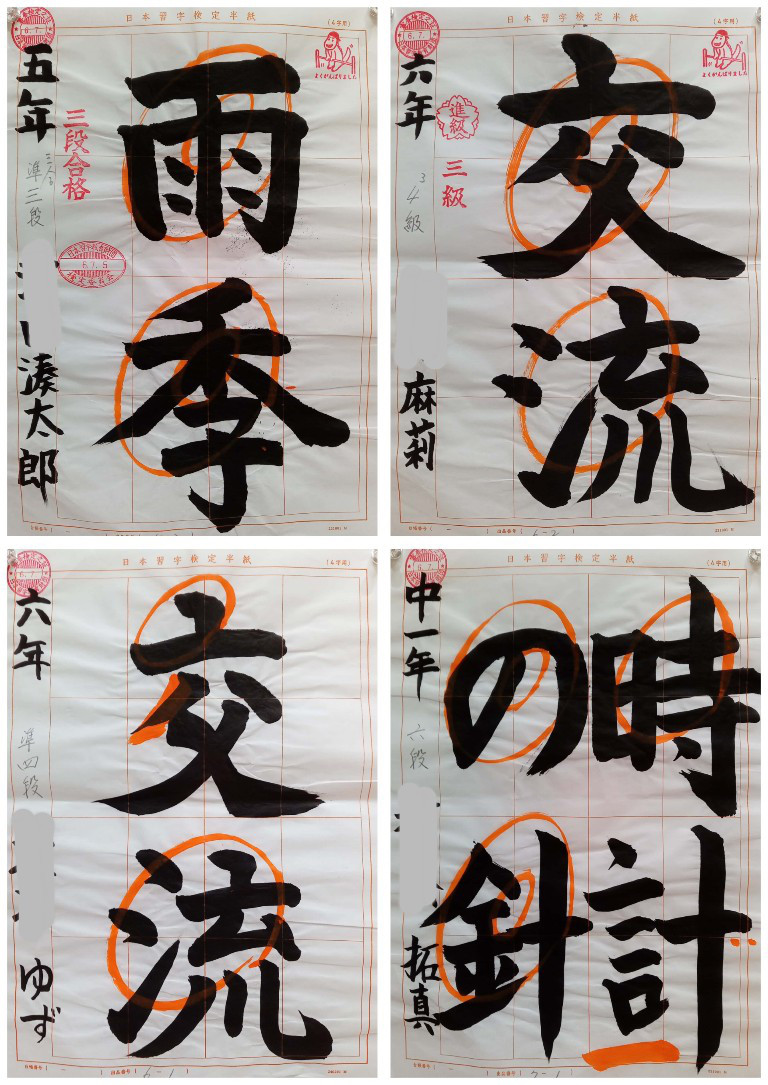 日本習字検定半紙
(4字用)
雨季
五年
準三段
湊太郎
三段合格
6.7.5
よくがんばりました
日本習字検定半紙
(4字用)
交流
六年
4級
3
麻莉
進級
三級
よくがんばりました
日本習字検定半紙
(4字用)
交流
六年
準四段
ゆず
日本習字検定半紙
(4字用)
時計
の針
中一年
六段
拓真